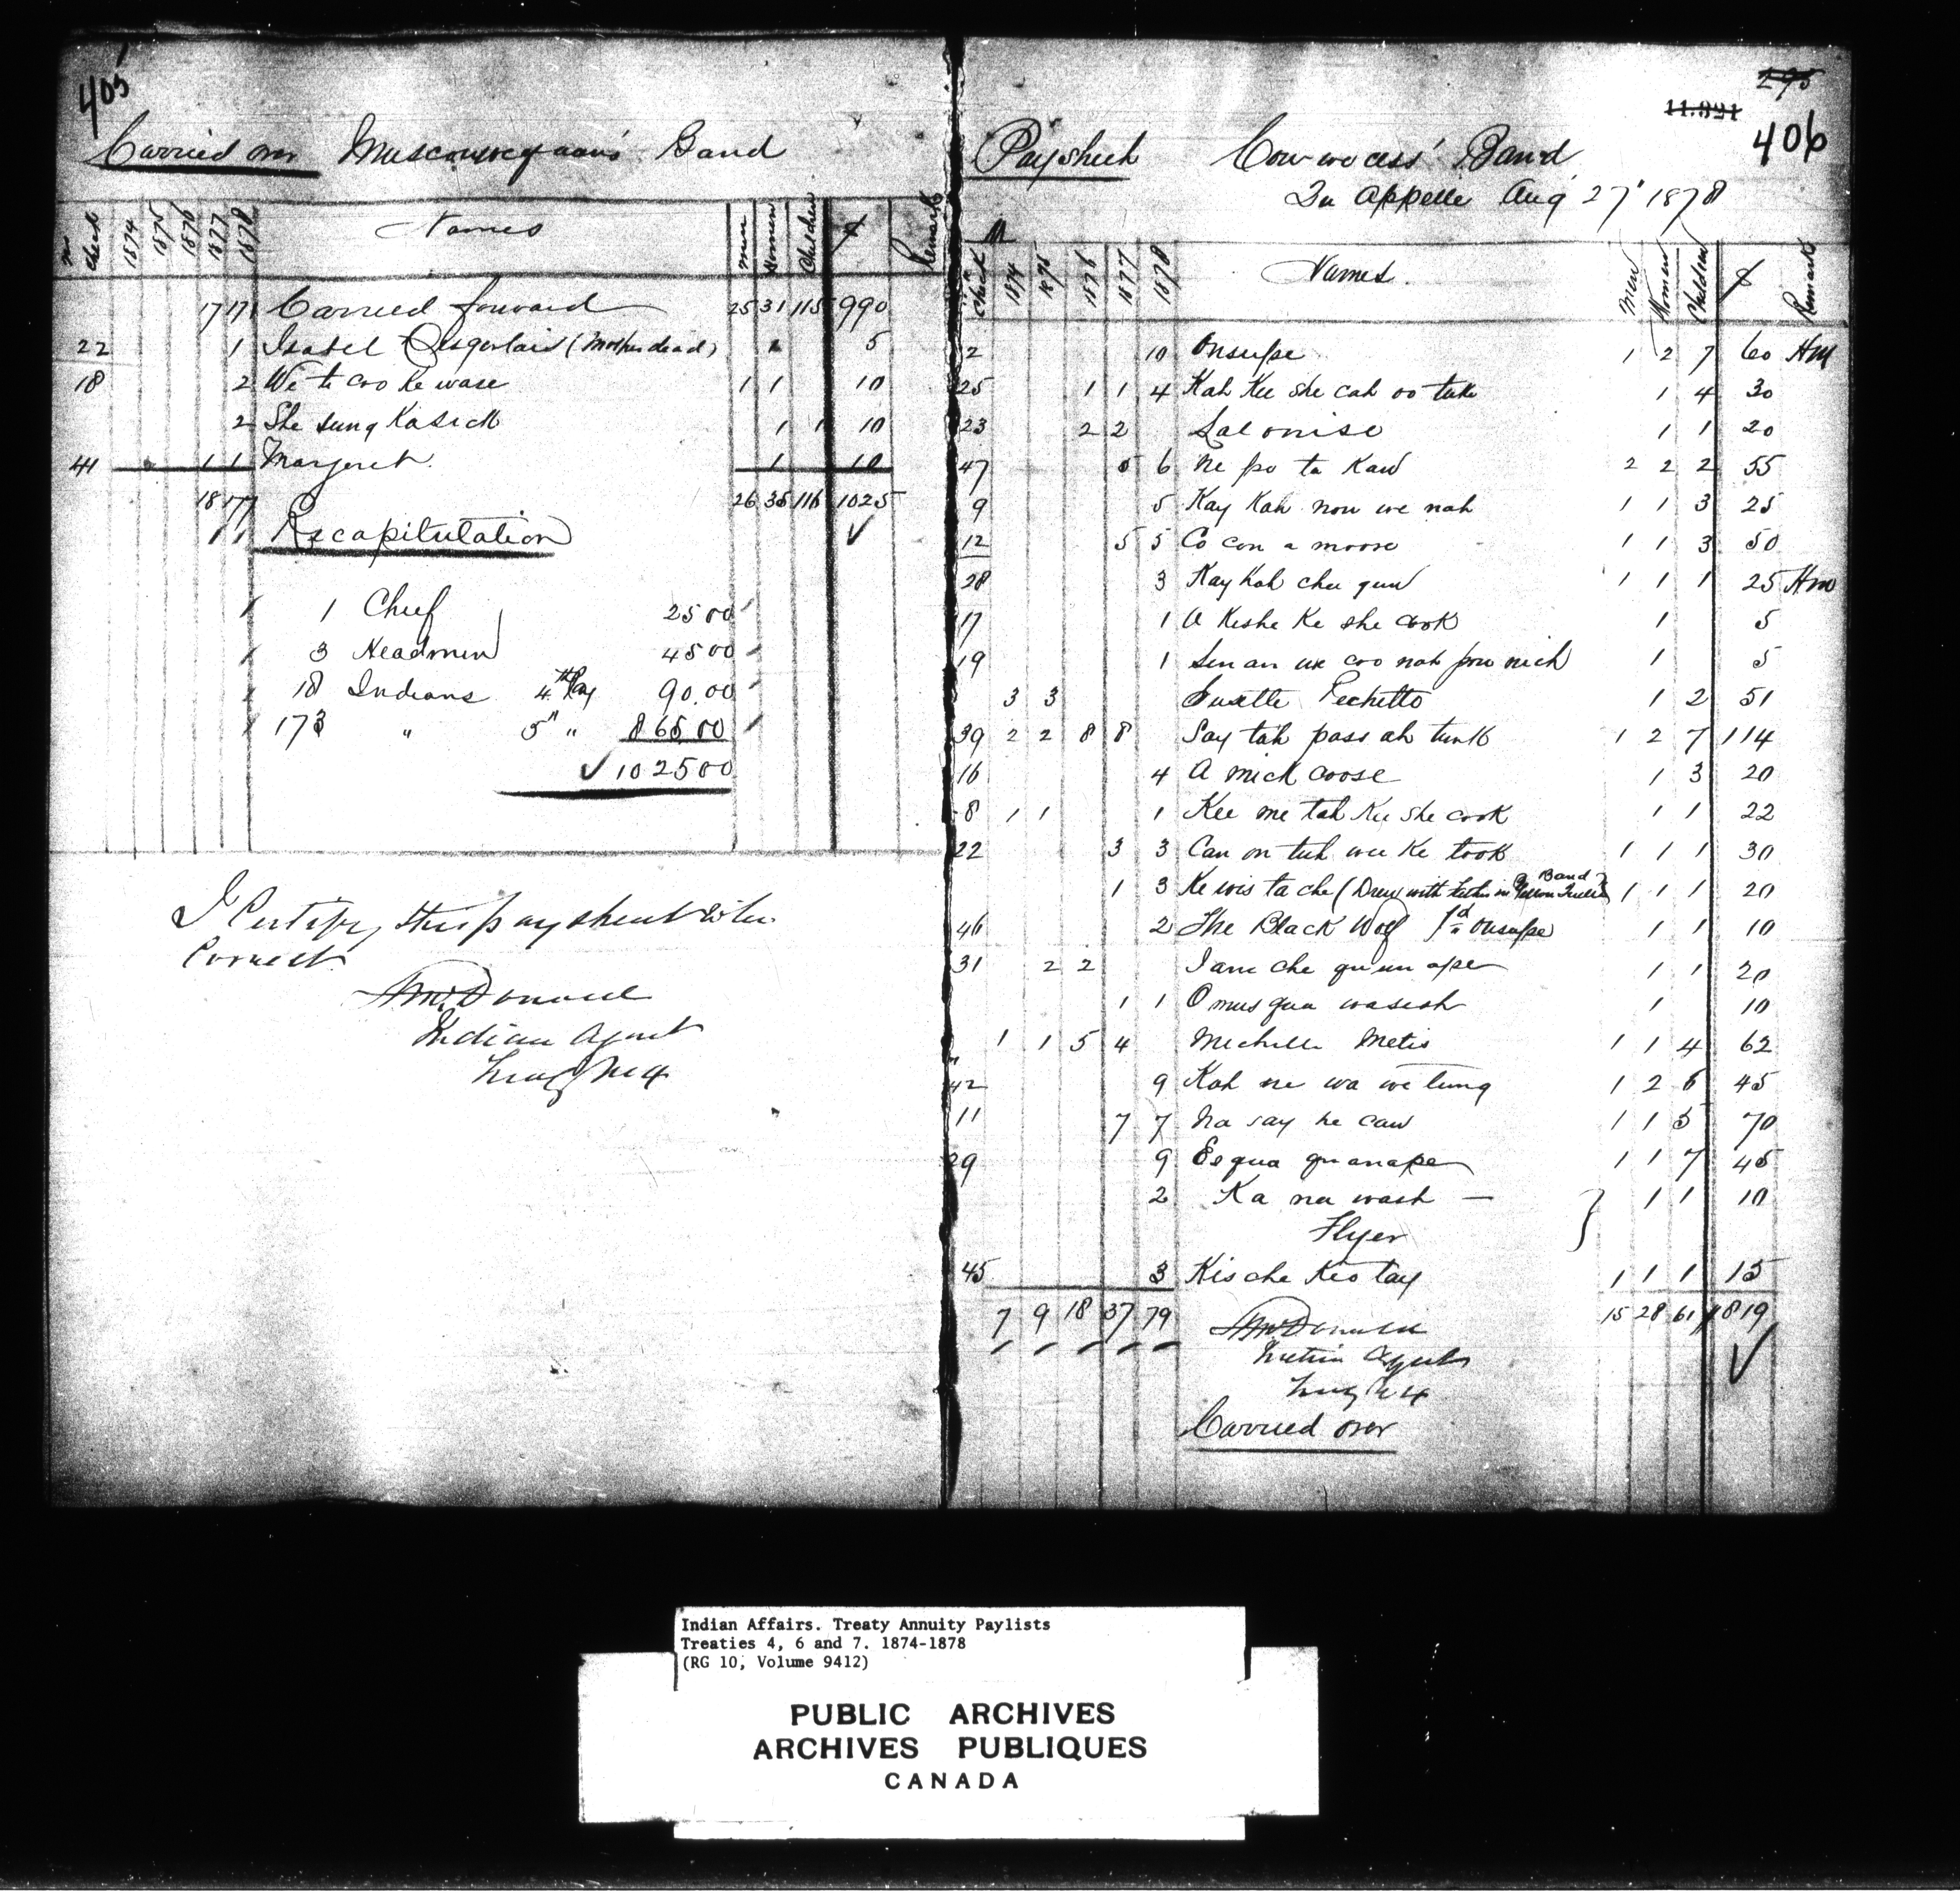 405
Carried over Muscowequan's Band
No Check 1874 1875 1876 1877 1878 Names Men Women Children $ Remarks
17 171 Carried forward 25 31 115 990
22 1 Isabel (Mother dead) 1 5
18 2 We te coo ke wase 1 1 10
2 She sung Kasick 1 1 10
41 1 1 Margeret 1 10
18 177 26 35 116 1025
Recapitulation
1 Chief 25 00
3 Headmen 45 00
18 Indians 4th Pay 90.00
173 " 5" " 865.00
1025 00
I Certify this paysheet to be
Correct.
McDonald
Indian Agent
Treaty No 4
275
11.321
406
Paysheet Cow we cess' Band
Qu Appelle Aug 27" 1878
No Check 1874 1875 1876 1877 1878 Names. Men Women Children $ Remarks
2 10 Onsupe 1 2 7 60 Hm
25 1 1 4 Kah Kee she cah oo take 1 4 30
23 2 2 Lalonise 1 1 20
47 5 6 Ne po ta Kaw 2 2 2 55
9 5 Kay Kah nou we nah 1 1 3 25
12 5 5 Co con a moose 1 1 3 50
28 3 Kay kah chee gun 1 1 1 25 Hm
17 1 A Keshe Ke she cook 1 5
19 1 Sen an we coo nah pow nich 1 5
3 3 Susette Pechetto 1 2 51
39 2 2 8 8 Say tah pass ah tunk 1 2 7 114
16 4 A mick coose 1 3 20
8 1 1 1 Kee me tah Kee she cook 1 1 22
22 3 3 Can on tuh wee Ke took 1 1 1 30
1 3 Ke wis ta che (Drew with Father in Yellow Quills Band) 1 1 1 20
46 2 The Black Wolf Pd to Onsupe 1 1 10
31 2 2 I am che qu un ape 1 1 20
1 1 O mus qua wasish 1 10
1 1 5 4 Michelle Metis 1 1 4 62
42 9 Kah ne wa we tung 1 2 6 45
11 7 7 Na say he caw 1 1 5 70
29 9 Esqua quanape 1 1 7 45
2 Ka na wash — 1 1 10
Flyer
45 3 Kische Keo tay 1 1 1 15
7 9 18 37 79 15 28 61 819
McDonald
Indian Agent
Treaty No 4
Carried over
Indian Affairs. Treaty Annuity Paylists
Treaties 4, 6 and 7. 1874-1878
(RG 10, Volume 9412)
PUBLIC ARCHIVES
ARCHIVES PUBLIQUES
CANADA